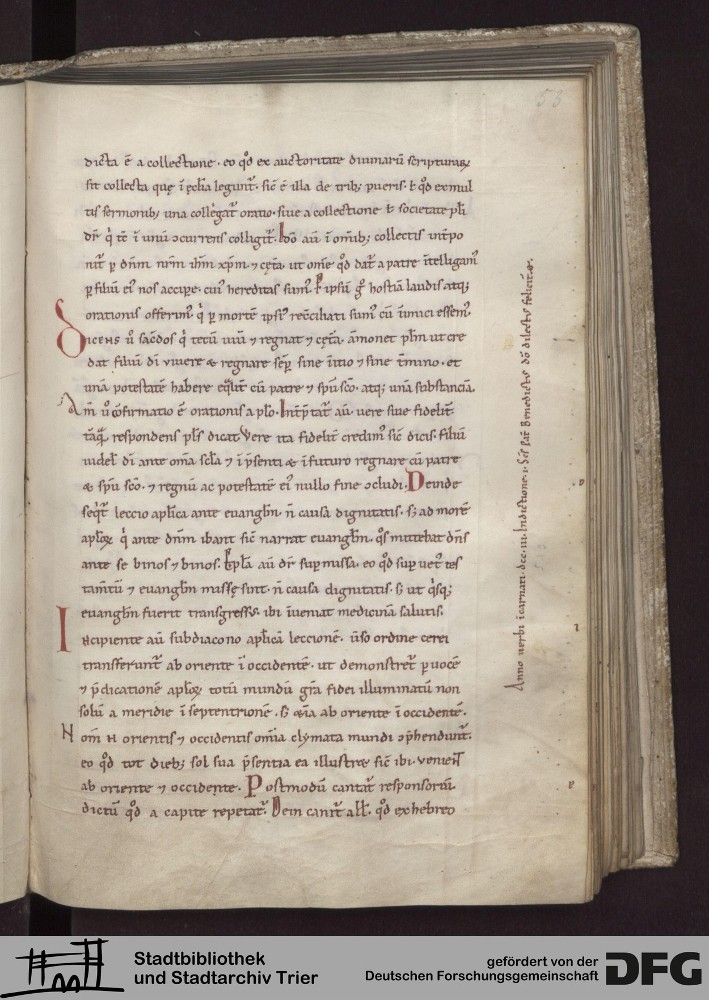 53
dicta ē a collectione · eo qd̄ ex auctoritate diuinarū scripturaꝝ
fit collecta quę ī ęcclia legunt̄ · sic̄ ē illa de trib; pueris · ł qd̄ ex mul
tis sermonib; una collegat̄ oratio · siue a collectione ł societate pli
dr̄ q̇ tē ī unū ↄcurrens colligit̄ · Iō aū ī omīb; collectis int̄po
nit̄ ꝑ dn̄m nr̄m ihm̄ xp̄m · ⁊ cęta · ut om̄e qd̄ dat̄ a patre ītelligam᷒
ꝑ filiū ei᷒ nos accipe · cui᷒ hereditas sum᷒ · ꝑ ipsū g̊ hostiā laudis atq;
orationis offerim᷒ · q̇ ꝑ mortē ipsi᷒ recc̄iliati sum᷒ cū īimici essem᷒ ·
Dicens ū sac̄dos q̇ tecū uiū ⁊ regnat ⁊ cęta · āmonet plm̄ ut cre
dat filiū dī uiuere & regnare sēp sine initio ⁊ sine t̄mino · et
unā potestatē habere eq̄lit̄ cū patre ⁊ spū sc̄o · atq; unā substanciā
Am̄ ū ↄfirmatio ē orationis a plo · Int̄p̄tat̄ aū · uere siue fidelit̄ ·
tāq̄ respondens pls̄ dicat uere ita fidelit̄ credim᷒ sic̄ dicis · filiū
uidel dī ante om̄a scl̄a ⁊ ī p̄senti & ī futuro regnare cū patre
& spū sc̄o · ⁊ regnū ac potestatē ei᷒ nullo fine ↄcludi · Deinde
seq̄t̄ leccio aplica ante euanghm̄ · n̄ causa dignitatis · s; ad morē
aploꝝ q̇ ante dn̄m ibant sic̄ narrat euanghm̄ · q̄s mittebat dn̄s
ante se binos ⁊ binos · Epla aū dr̄ suꝑ missa · eo qd̄ suꝑ uet᷒ tes
tam̄tū ⁊ euanghm̄ missę sint · n̄ causa dignitatis · s; ut q̇sq;
euanghm̄ fuerit transgressus · ibi īueniat medicinā salutis ·
Incipiente aū subdiacono aplicā leccionē · ūso ordine cerei
transferunt̄ ab oriente ī occidentē · ut demonstret̄ ꝑ uocē
⁊ p̄dicationē aploꝝ totū mundū gr̄a fidei illuminatū non
solū a meridie ī septentrionē · s; &iā ab oriente ī occidentē ·
Nom̄ N orientis ⁊ occidentis om̄ia clymata mundi ↄp̄hendunt̄ ·
eo qd̄ tot dieb; sol sua p̄sentia ea illustrat sic̄ ibi · venient
ab oriente ⁊ occidente · Postmodū cantat̄ responsoriū ·
dictū qd̄ a capite repetat̄ · Dein canit̄ all̄ · qd̄ ex hebreo
Anno uerbi īcarnati · dcc · iii · Indictione · i · Sc̄s pat̄ Benedictus dō dilectus feliciter ·
Stadtbibliothek
und Stadtarchiv Trier
gefördert von der
Deutschen Forschungsgemeinschaft
DFG